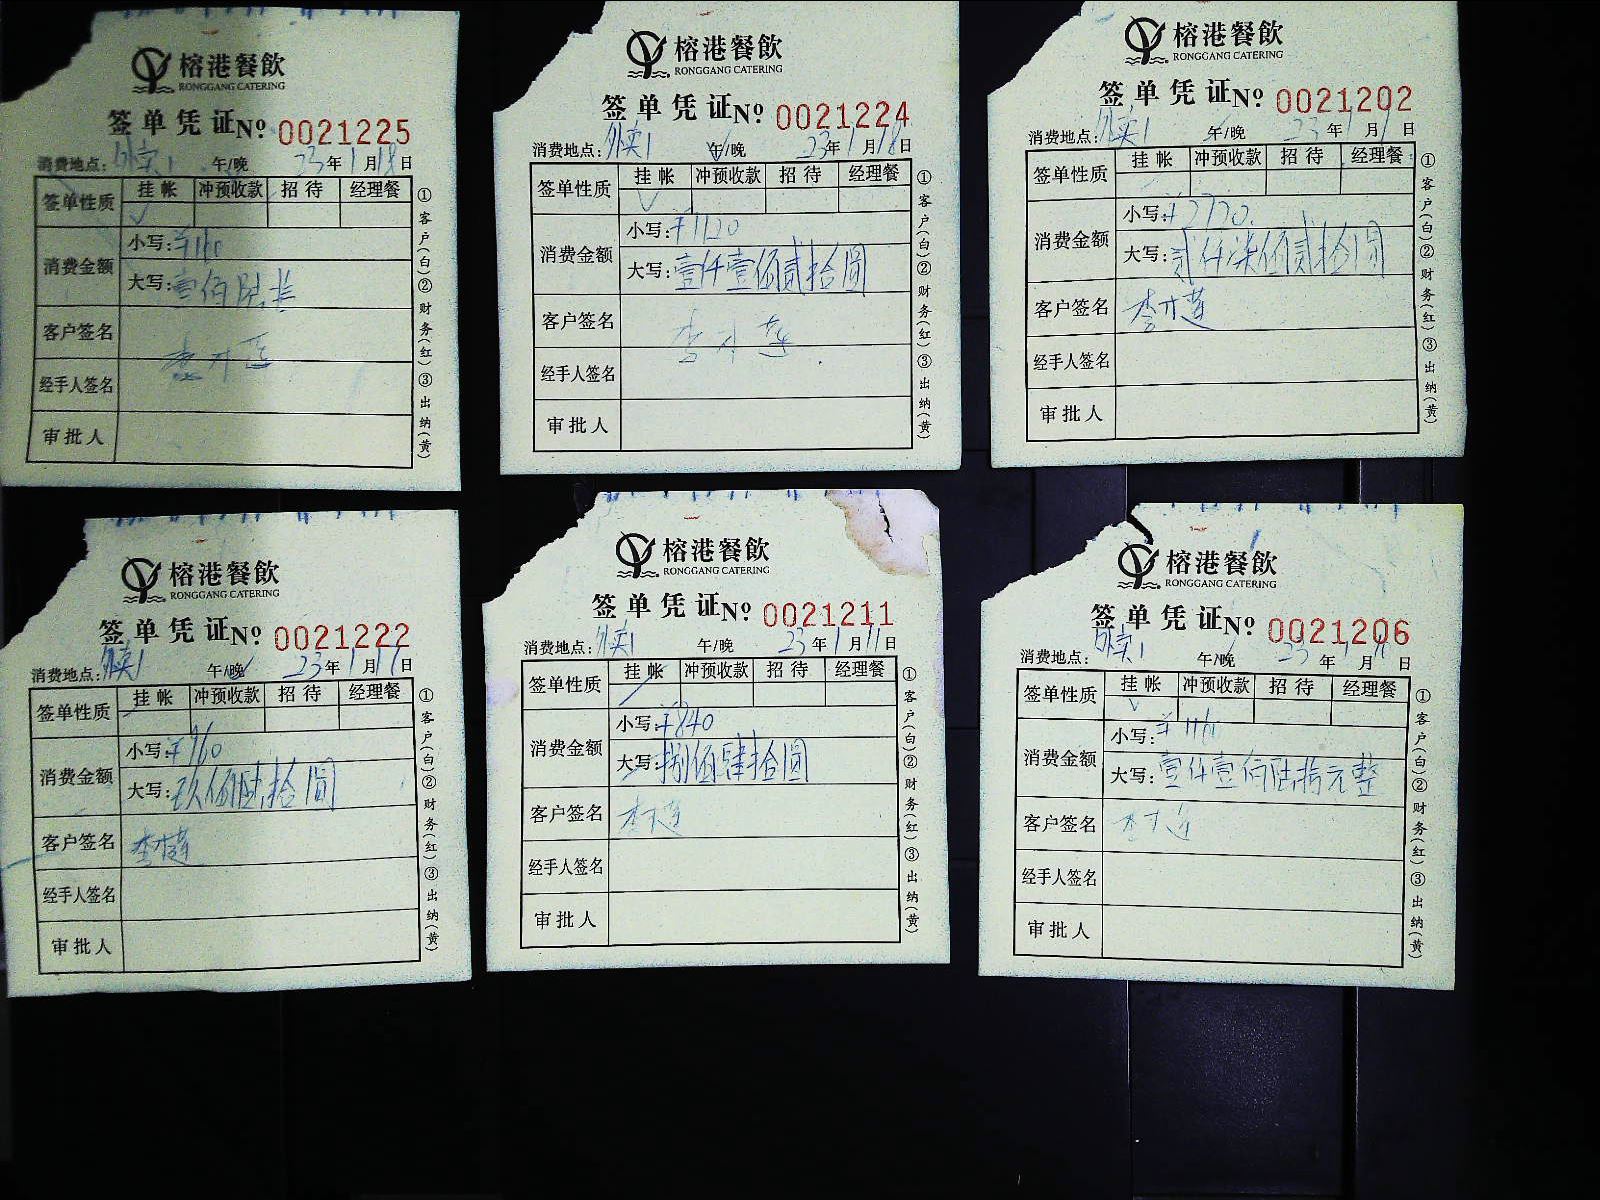 榕港餐飲
RONGGANG CATERING
签单凭证 Nº 0021225
消费地点: 外卖1 午/晚 23年1月18日
签单性质 挂帐 冲预收款 招待 经理餐
消费金额 小写:¥160
大写:壹佰陆拾
客户签名
经手人签名
审批人
①客户(白)②财务(红)③出纳(黄)
榕港餐飲
RONGGANG CATERING
签单凭证 Nº 0021224
消费地点: 外卖1 午/晚 23年1月18日
签单性质 挂帐 冲预收款 招待 经理餐
消费金额 小写:¥1120
大写:壹仟壹佰贰拾圆
客户签名 李才莲
经手人签名
审批人
①客户(白)②财务(红)③出纳(黄)
榕港餐飲
RONGGANG CATERING
签单凭证 Nº 0021202
消费地点: 外卖1 午/晚 23年1月1日
签单性质 挂帐 冲预收款 招待 经理餐
消费金额 小写:¥2720
大写:贰仟柒佰贰拾圆
客户签名 李才莲
经手人签名
审批人
①客户(白)②财务(红)③出纳(黄)
榕港餐飲
RONGGANG CATERING
签单凭证 Nº 0021222
消费地点: 外卖1 午/晚 23年1月17日
签单性质 挂帐 冲预收款 招待 经理餐
消费金额 小写:¥960
大写:玖佰陆拾圆
客户签名 李才莲
经手人签名
审批人
①客户(白)②财务(红)③出纳(黄)
榕港餐飲
RONGGANG CATERING
签单凭证 Nº 0021211
消费地点: 外卖1 午/晚 23年1月11日
签单性质 挂帐 冲预收款 招待 经理餐
消费金额 小写:¥840
大写:捌佰肆拾圆
客户签名 李才莲
经手人签名
审批人
①客户(白)②财务(红)③出纳(黄)
榕港餐飲
RONGGANG CATERING
签单凭证 Nº 0021206
消费地点: 外卖1 午/晚 23年1月日
签单性质 挂帐 冲预收款 招待 经理餐
消费金额 小写:¥1160
大写:壹仟壹佰陆拾元整
客户签名 李才莲
经手人签名
审批人
①客户(白)②财务(红)③出纳(黄)